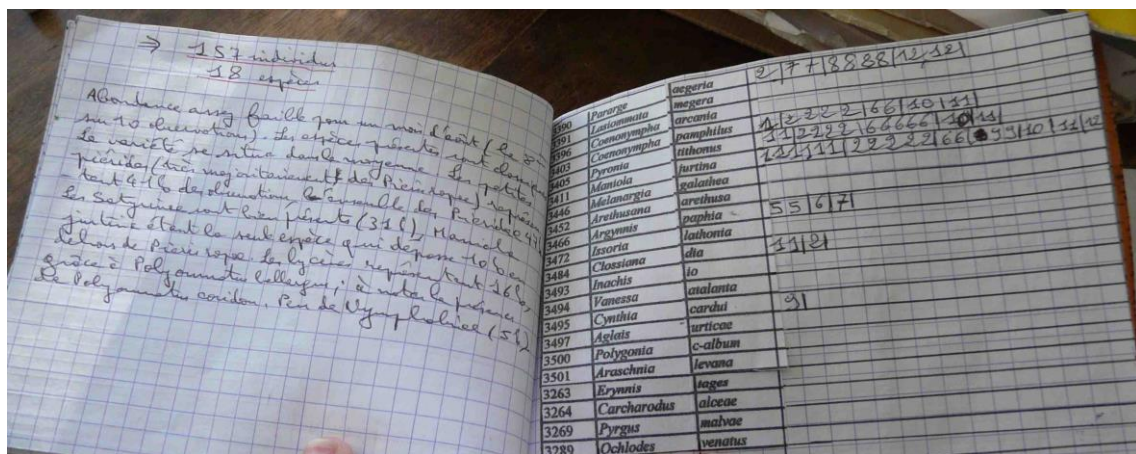 ⇒ 157 individus
18 espèces
Abondance assez faible pour un mois d'août (le 8e
sur 10 observations). Les espèces présentes sont
la variété se situe dans la moyenne. Les petites
piérides (très majoritairement des Pieris rapae) représen-
tent 41% des observations, l'ensemble des Pieridae 47%
les Satyrinae sont bien présents (31%), Maniola
jurtina étant la seule espèce qui dépasse 10% en
dehors de Pieris rapae. Les lycènes représentent 16%,
grâce à Polyommatus bellargus; à noter la présence
de Polyommatus coridon. Peu de Nymphalinae (5%)
3390 Pararge aegeria 2|77|8888|12 12|
3391 Lasiommata megera
3396 Coenonympha arcania
3403 Coenonympha pamphilus 1|2222|66|10|11|
3405 Pyronia tithonus 11|2222|66666|10|11
3411 Maniola jurtina 111111|22222|66|99|10|11|12
3446 Melanargia galathea
3452 Arethusana arethusa
3466 Argynnis paphia 55|6|7|
3472 Issoria lathonia
3484 Clossiana dia 11|2|
3493 Inachis io
3494 Vanessa atalanta
3495 Cynthia cardui 9|
3497 Aglais urticae
3500 Polygonia c-album
3501 Araschnia levana
3263 Erynnis tages
3264 Carcharodus alceae
3269 Pyrgus malvae
3289 Ochlodes venatus